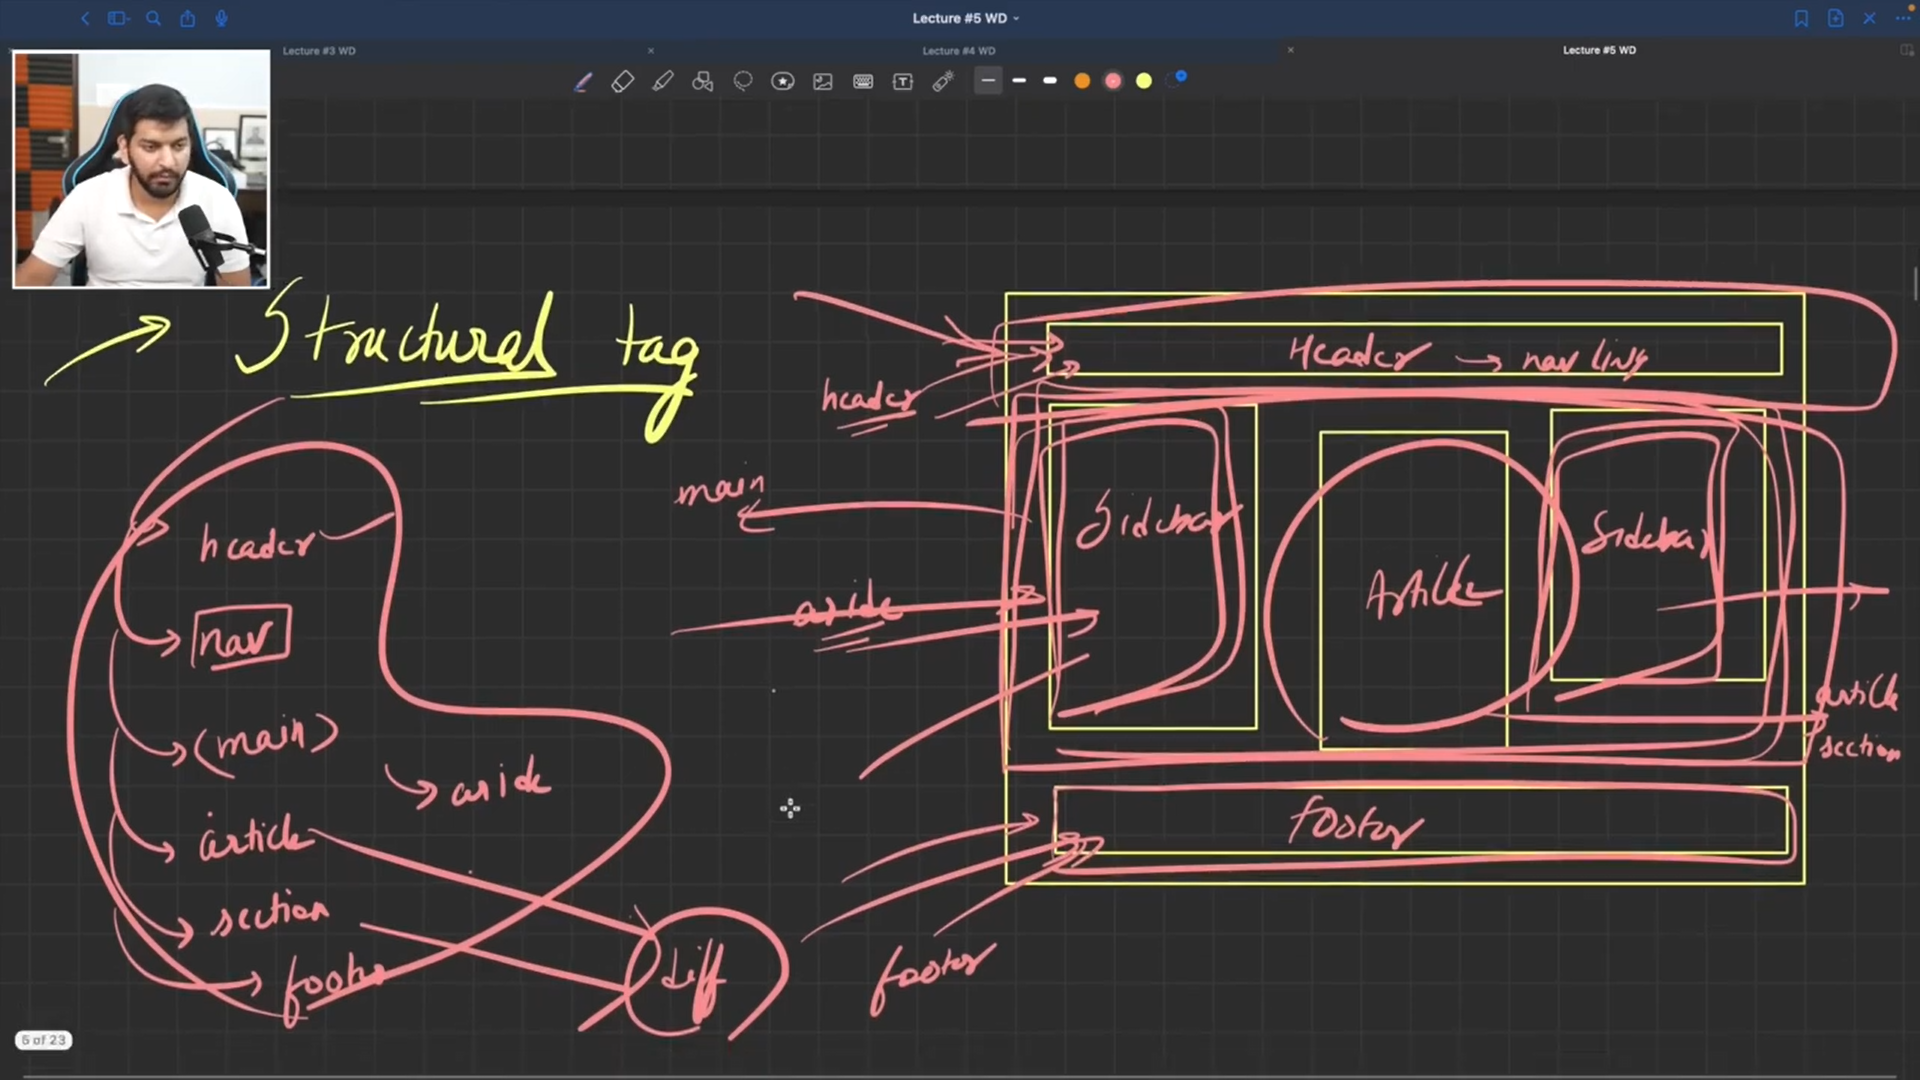 Lecture #5 WD
Lecture #3 WD
Lecture #4 WD
Lecture #5 WD
Structural tag
header
nav
(main)
aside
article
section
footer
diff
header
main
aside
footer
Header → nav link
Sidebar
Article
Sidebar
article
section
footer
6 of 23